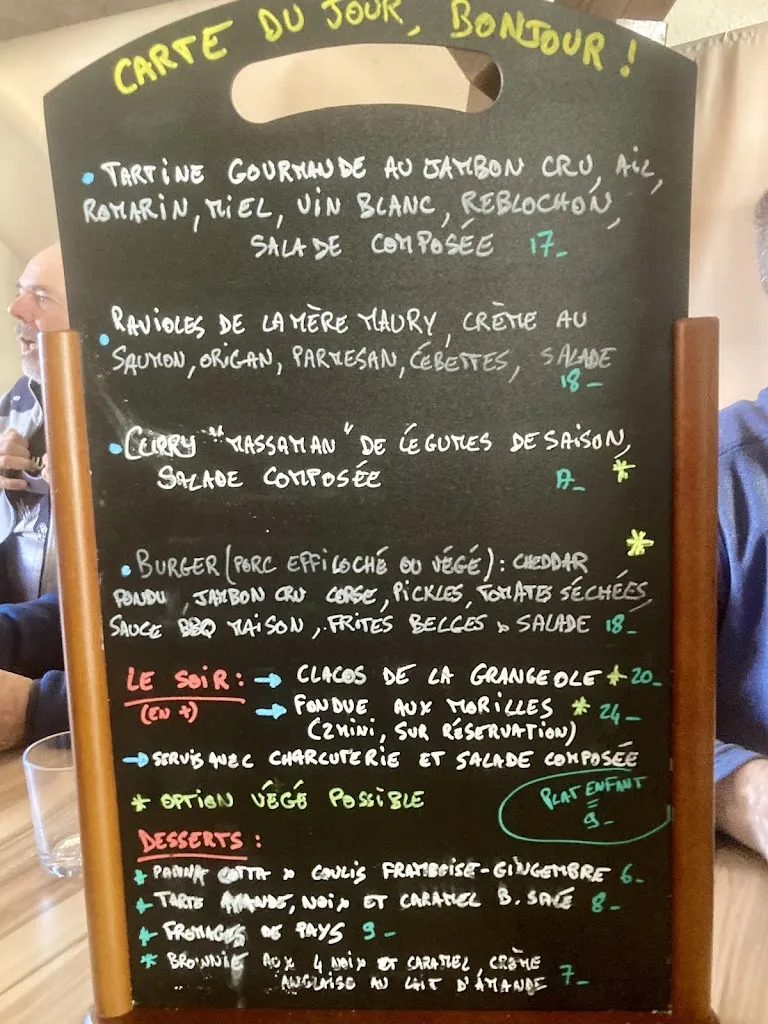 CARTE DU JOUR, BONJOUR !
• TARTINE GOURMANDE AU JAMBON CRU, AIL,
ROMARIN, MIEL, VIN BLANC, REBLOCHON,
SALADE COMPOSÉE 17_
• RAVIOLES DE LA MÈRE MAURY, CRÈME AU
SAUMON, ORIGAN, PARMESAN, CÉBETTES, SALADE
18_
• CURRY "MASSAMAN" DE LÉGUMES DE SAISON,
SALADE COMPOSÉE *
• BURGER (PORC EFFILOCHÉ OU VÉGÉ) : CHEDDAR *
FONDU, JAMBON CRU CORSE, PICKLES, TOMATES SÉCHÉES,
SAUCE BBQ MAISON, FRITES BELGES & SALADE 18_
LE SOIR : → CLACOS DE LA GRANGEOLE * 20_
(EN +) → FONDUE AUX MORILLES * 24_
(2 MINI, SUR RÉSERVATION)
→ SERVIS AVEC CHARCUTERIE ET SALADE COMPOSÉE
* OPTION VÉGÉ POSSIBLE
PLAT ENFANT
=
9_
DESSERTS :
* PANNA COTTA & COULIS FRAMBOISE-GINGEMBRE 6_
* TARTE AMANDE, NOIX ET CARAMEL B. SALÉ 8_
* FROMAGES DE PAYS 9_
* BROWNIE AUX 4 NOIX ET CARAMEL, CRÈME
ANGLAISE AU LAIT D'AMANDE 7_